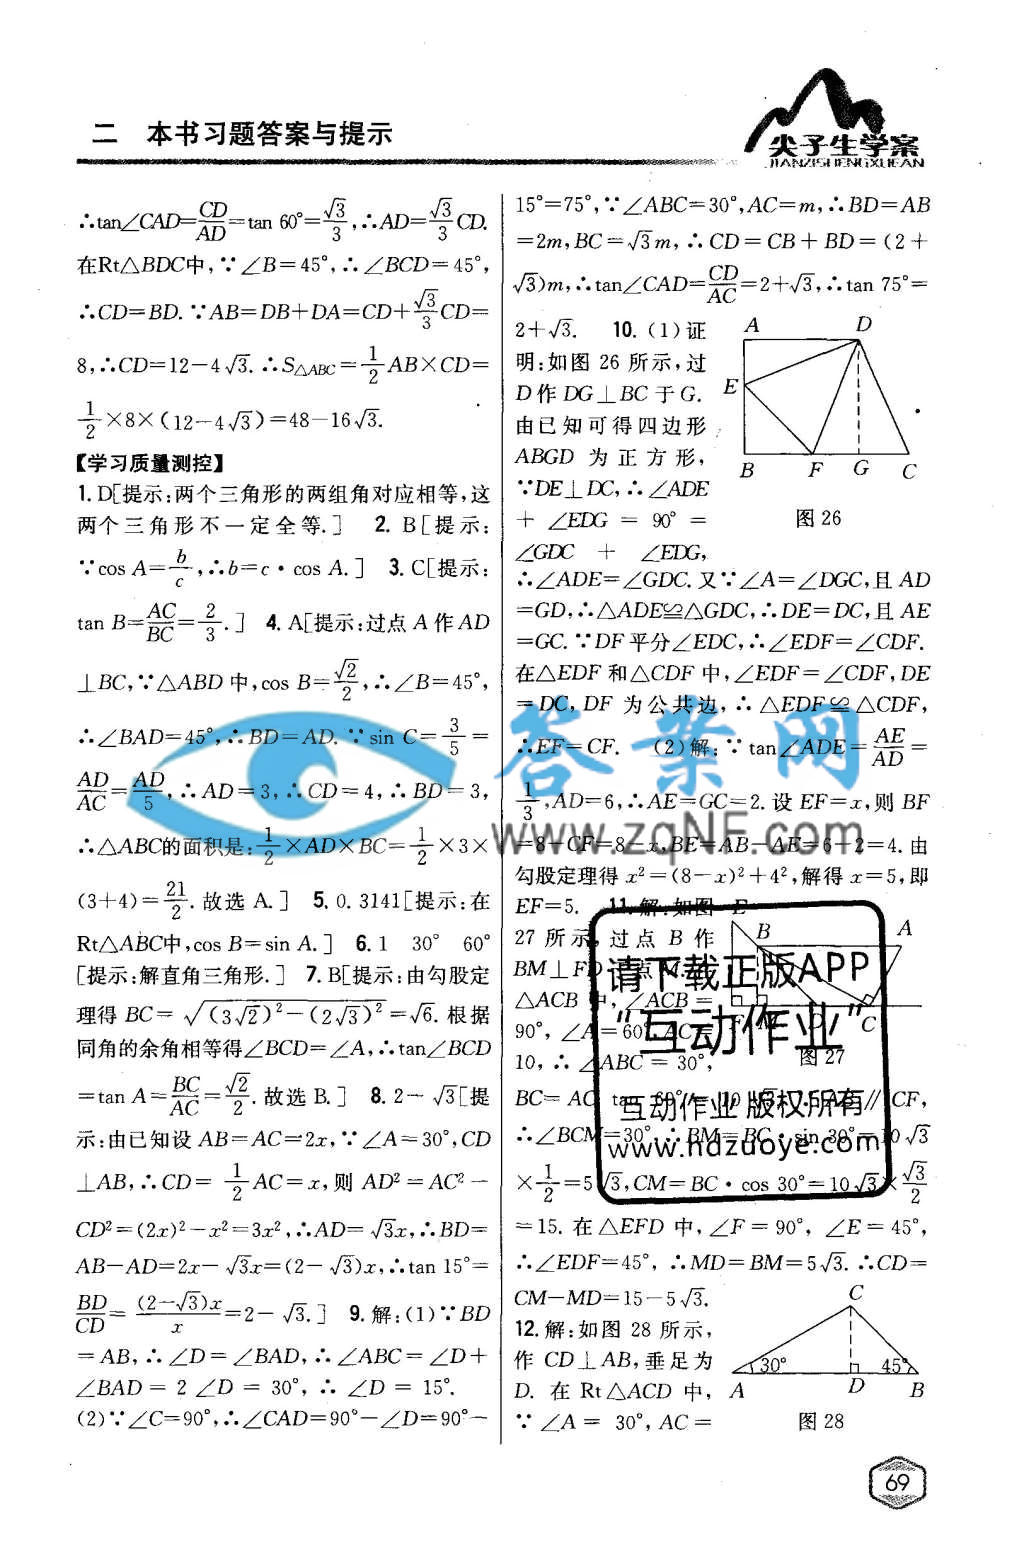 二 本书习题答案与提示
尖子生学案
JIANZISHENGXUEAN
∴tan∠CAD=CD/AD=tan 60°=√3/3,∴AD=√3/3 CD.
在Rt△BDC中,∵∠B=45°,∴∠BCD=45°,
∴CD=BD.∵AB=DB+DA=CD+√3/3 CD=
8,∴CD=12-4√3.∴S△ABC=1/2 AB×CD=
1/2×8×(12-4√3)=48-16√3.
【学习质量测控】
1. D[提示:两个三角形的两组角对应相等,这
两个三角形不一定全等.] 2. B[提示:
∵cos A=b/c,∴b=c·cos A.] 3. C[提示:
tan B=AC/BC=2/3.] 4. A[提示:过点A作AD
⊥BC,∵△ABD中,cos B=√2/2,∴∠B=45°,
∴∠BAD=45°,∴BD=AD.∵sin C=3/5=
AD/AC=AD/5,∴AD=3,∴CD=4,∴BD=3,
∴△ABC的面积是:1/2×AD×BC=1/2×3×
(3+4)=21/2.故选A.] 5. 0.3141[提示:在
Rt△ABC中,cos B=sin A.] 6. 1 30° 60°
[提示:解直角三角形.] 7. B[提示:由勾股定
理得BC=√((3√2)²-(2√3)²)=√6.根据
同角的余角相等得∠BCD=∠A,∴tan∠BCD
=tan A=BC/AC=√2/2.故选B.] 8. 2-√3[提
示:由已知设AB=AC=2x,∵∠A=30°,CD
⊥AB,∴CD=1/2 AC=x,则AD²=AC²-
CD²=(2x)²-x²=3x²,∴AD=√3x,∴BD=
AB-AD=2x-√3x=(2-√3)x,∴tan 15°=
BD/CD=(2-√3)x/x=2-√3.] 9. 解:(1)∵BD
=AB,∴∠D=∠BAD,∴∠ABC=∠D+
∠BAD=2∠D=30°,∴∠D=15°.
(2)∵∠C=90°,∴∠CAD=90°-∠D=90°-
15°=75°,∵∠ABC=30°,AC=m,∴BD=AB
=2m,BC=√3m,∴CD=CB+BD=(2+
√3)m,∴tan∠CAD=CD/AC=2+√3,∴tan 75°=
2+√3. 10. (1)证
明:如图26所示,过
D作DG⊥BC于G.
由已知可得四边形
ABGD为正方形,
∵DE⊥DC,∴∠ADE
+∠EDG=90°=
∠GDC+∠EDG,
A D
E
B F G C
图26
∴∠ADE=∠GDC.又∵∠A=∠DGC,且AD
=GD,∴△ADE≌△GDC,∴DE=DC,且AE
=GC.∵DF平分∠EDC,∴∠EDF=∠CDF.
在△EDF和△CDF中,∠EDF=∠CDF,DE
=DC,DF为公共边,∴△EDF≌△CDF,
∴EF=CF. (2)解:∵tan∠ADE=AE/AD=
1/3,AD=6,∴AE=GC=2.设EF=x,则BF
=8-CF=8-x,BE=AB-AE=6-2=4.由
勾股定理得x²=(8-x)²+4²,解得x=5,即
EF=5. 11. 解:如图
27所示,过点B作
BM⊥FD于点M.
△ACB中,∠ACB=
90°,∠A=60°,AC=
10,∴∠ABC=30°,
E
B A
F M D C
图27
BC=AC tan 60°=10√3,∵AB∥CF,
∴∠BCM=30°.∴BM=BC·sin 30°=10√3
×1/2=5√3,CM=BC·cos 30°=10√3×√3/2
=15.在△EFD中,∠F=90°,∠E=45°,
∴∠EDF=45°,∴MD=BM=5√3.∴CD=
CM-MD=15-5√3.
12. 解:如图28所示,
作CD⊥AB,垂足为
D.在Rt△ACD中,
∵∠A=30°,AC=
C
30° 45°
A D B
图28
答案网
www.zqNF.com
请下载正版APP
“互动作业”
互动作业 版权所有
www.hdzuoye.com
69